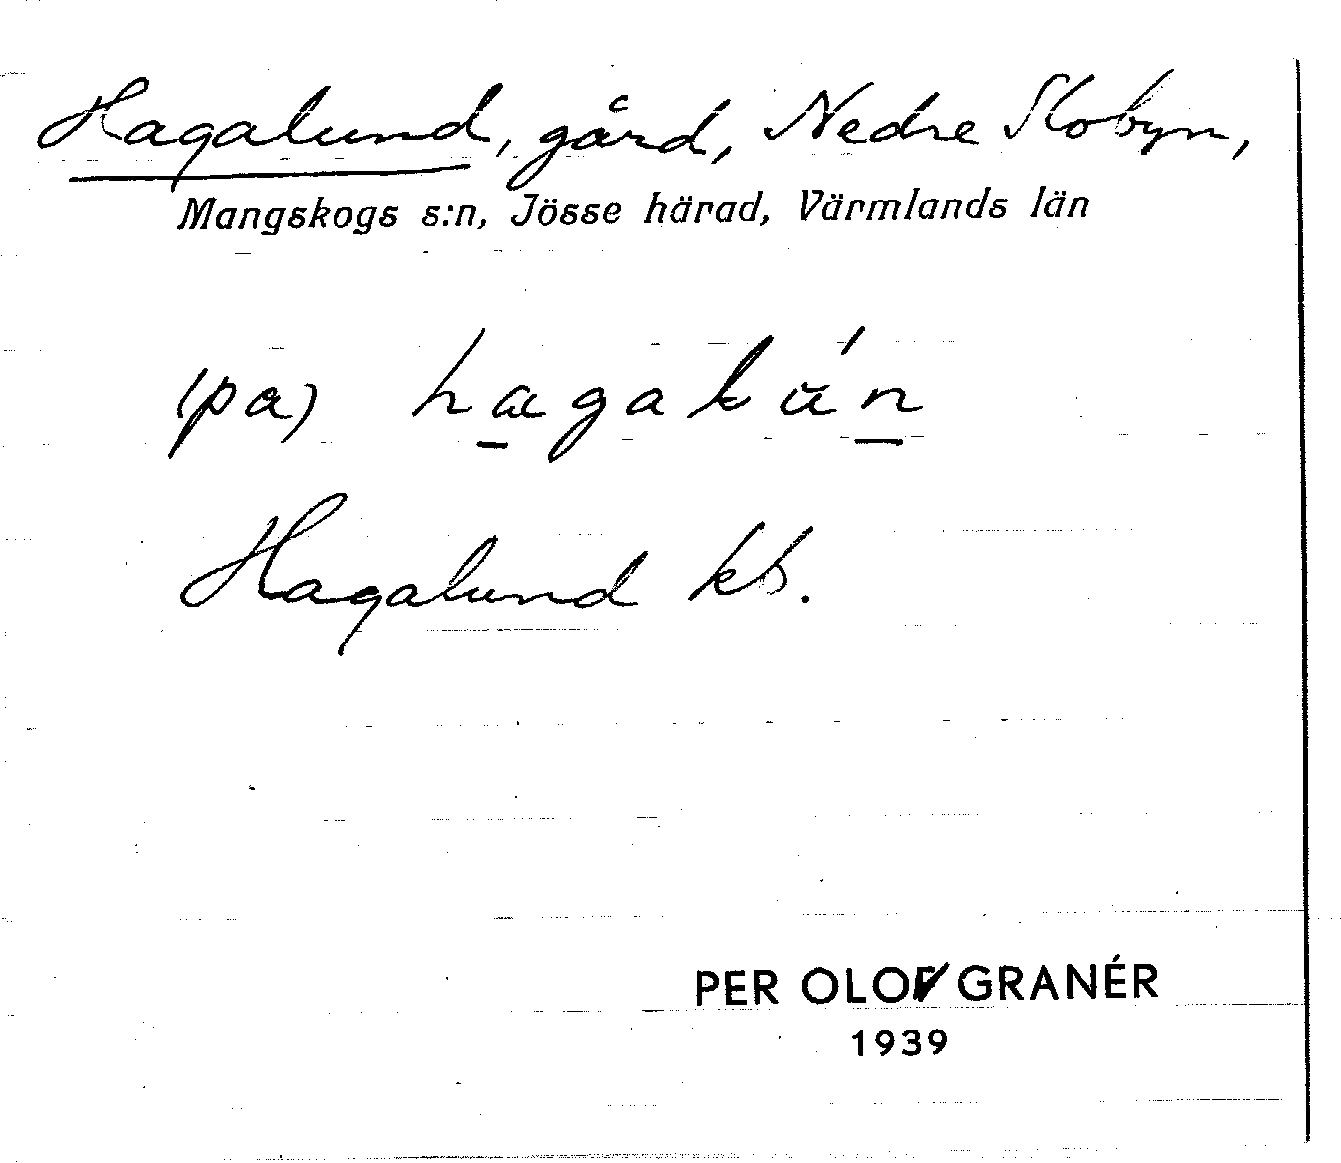 Hagalund, gård, Nedre Slobyn,
Mangskogs s:n, Jösse härad, Värmlands län
(pa)
Hagalund kb.
PER OLOV GRANÉR
1939